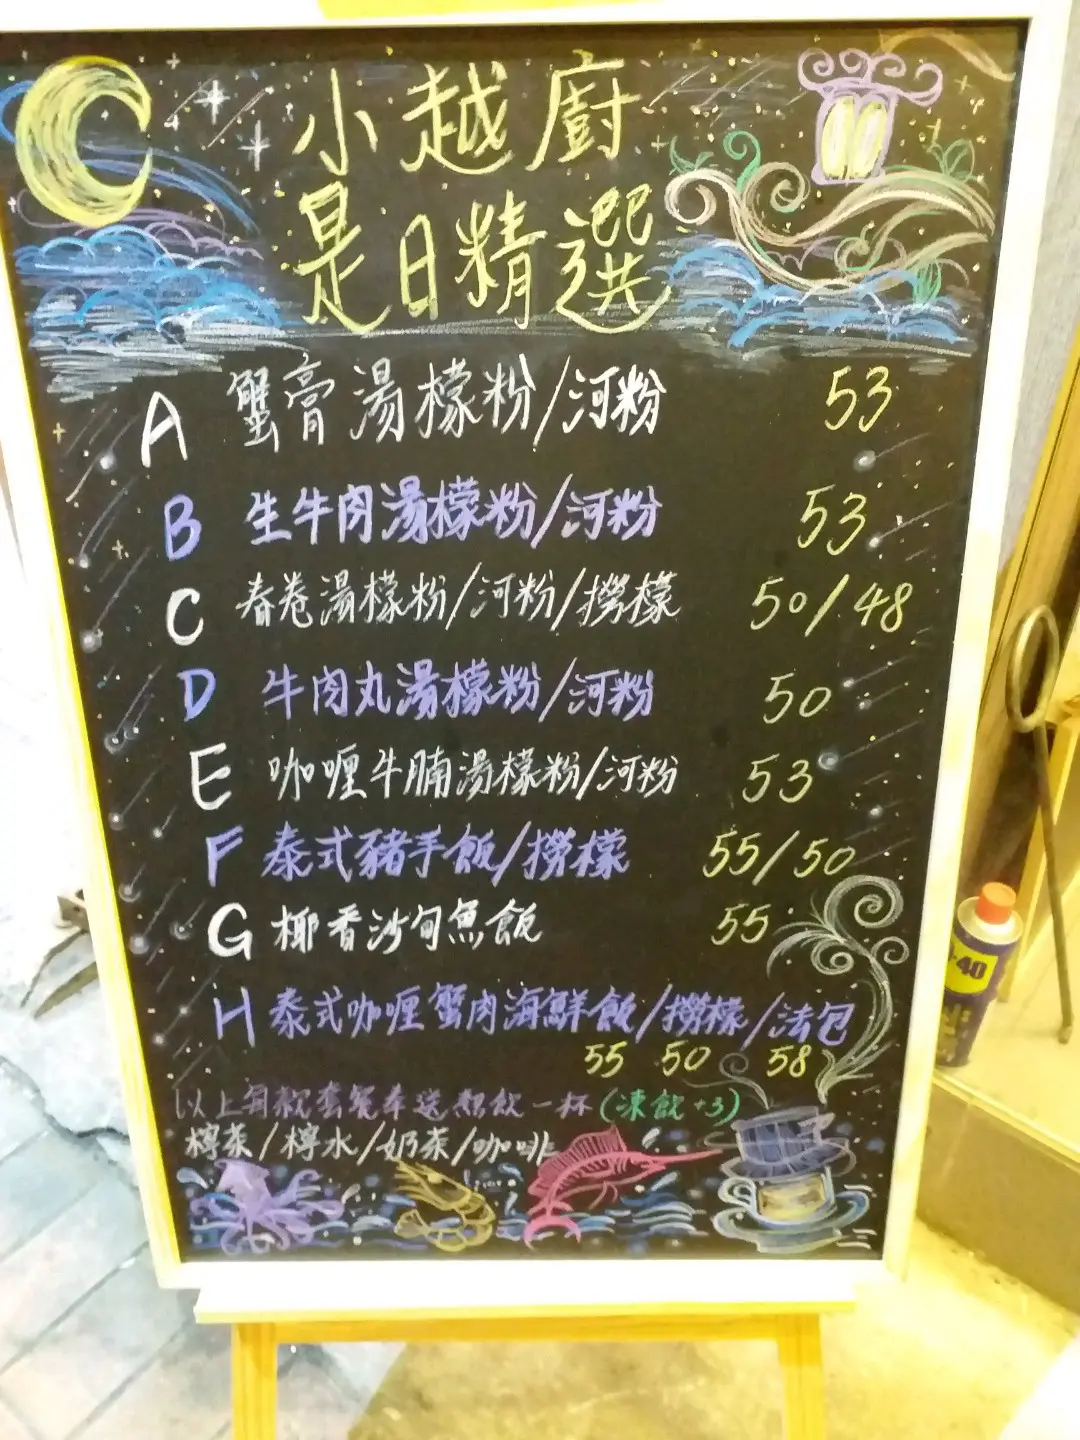 小越廚
是日精選
A 蟹膏湯檬粉/河粉 53
B 生牛肉湯檬粉/河粉 53
C 春卷湯檬粉/河粉/撈檬 50/48
D 牛肉丸湯檬粉/河粉 50
E 咖喱牛腩湯檬粉/河粉 53
F 泰式豬手飯/撈檬 55/50
G 椰香沙甸魚飯 55
H 泰式咖喱蟹肉海鮮飯/撈檬/法包
55 50 58
以上每款套餐奉送熱飲一杯(凍飲+3)
檸茶/檸水/奶茶/咖啡
40